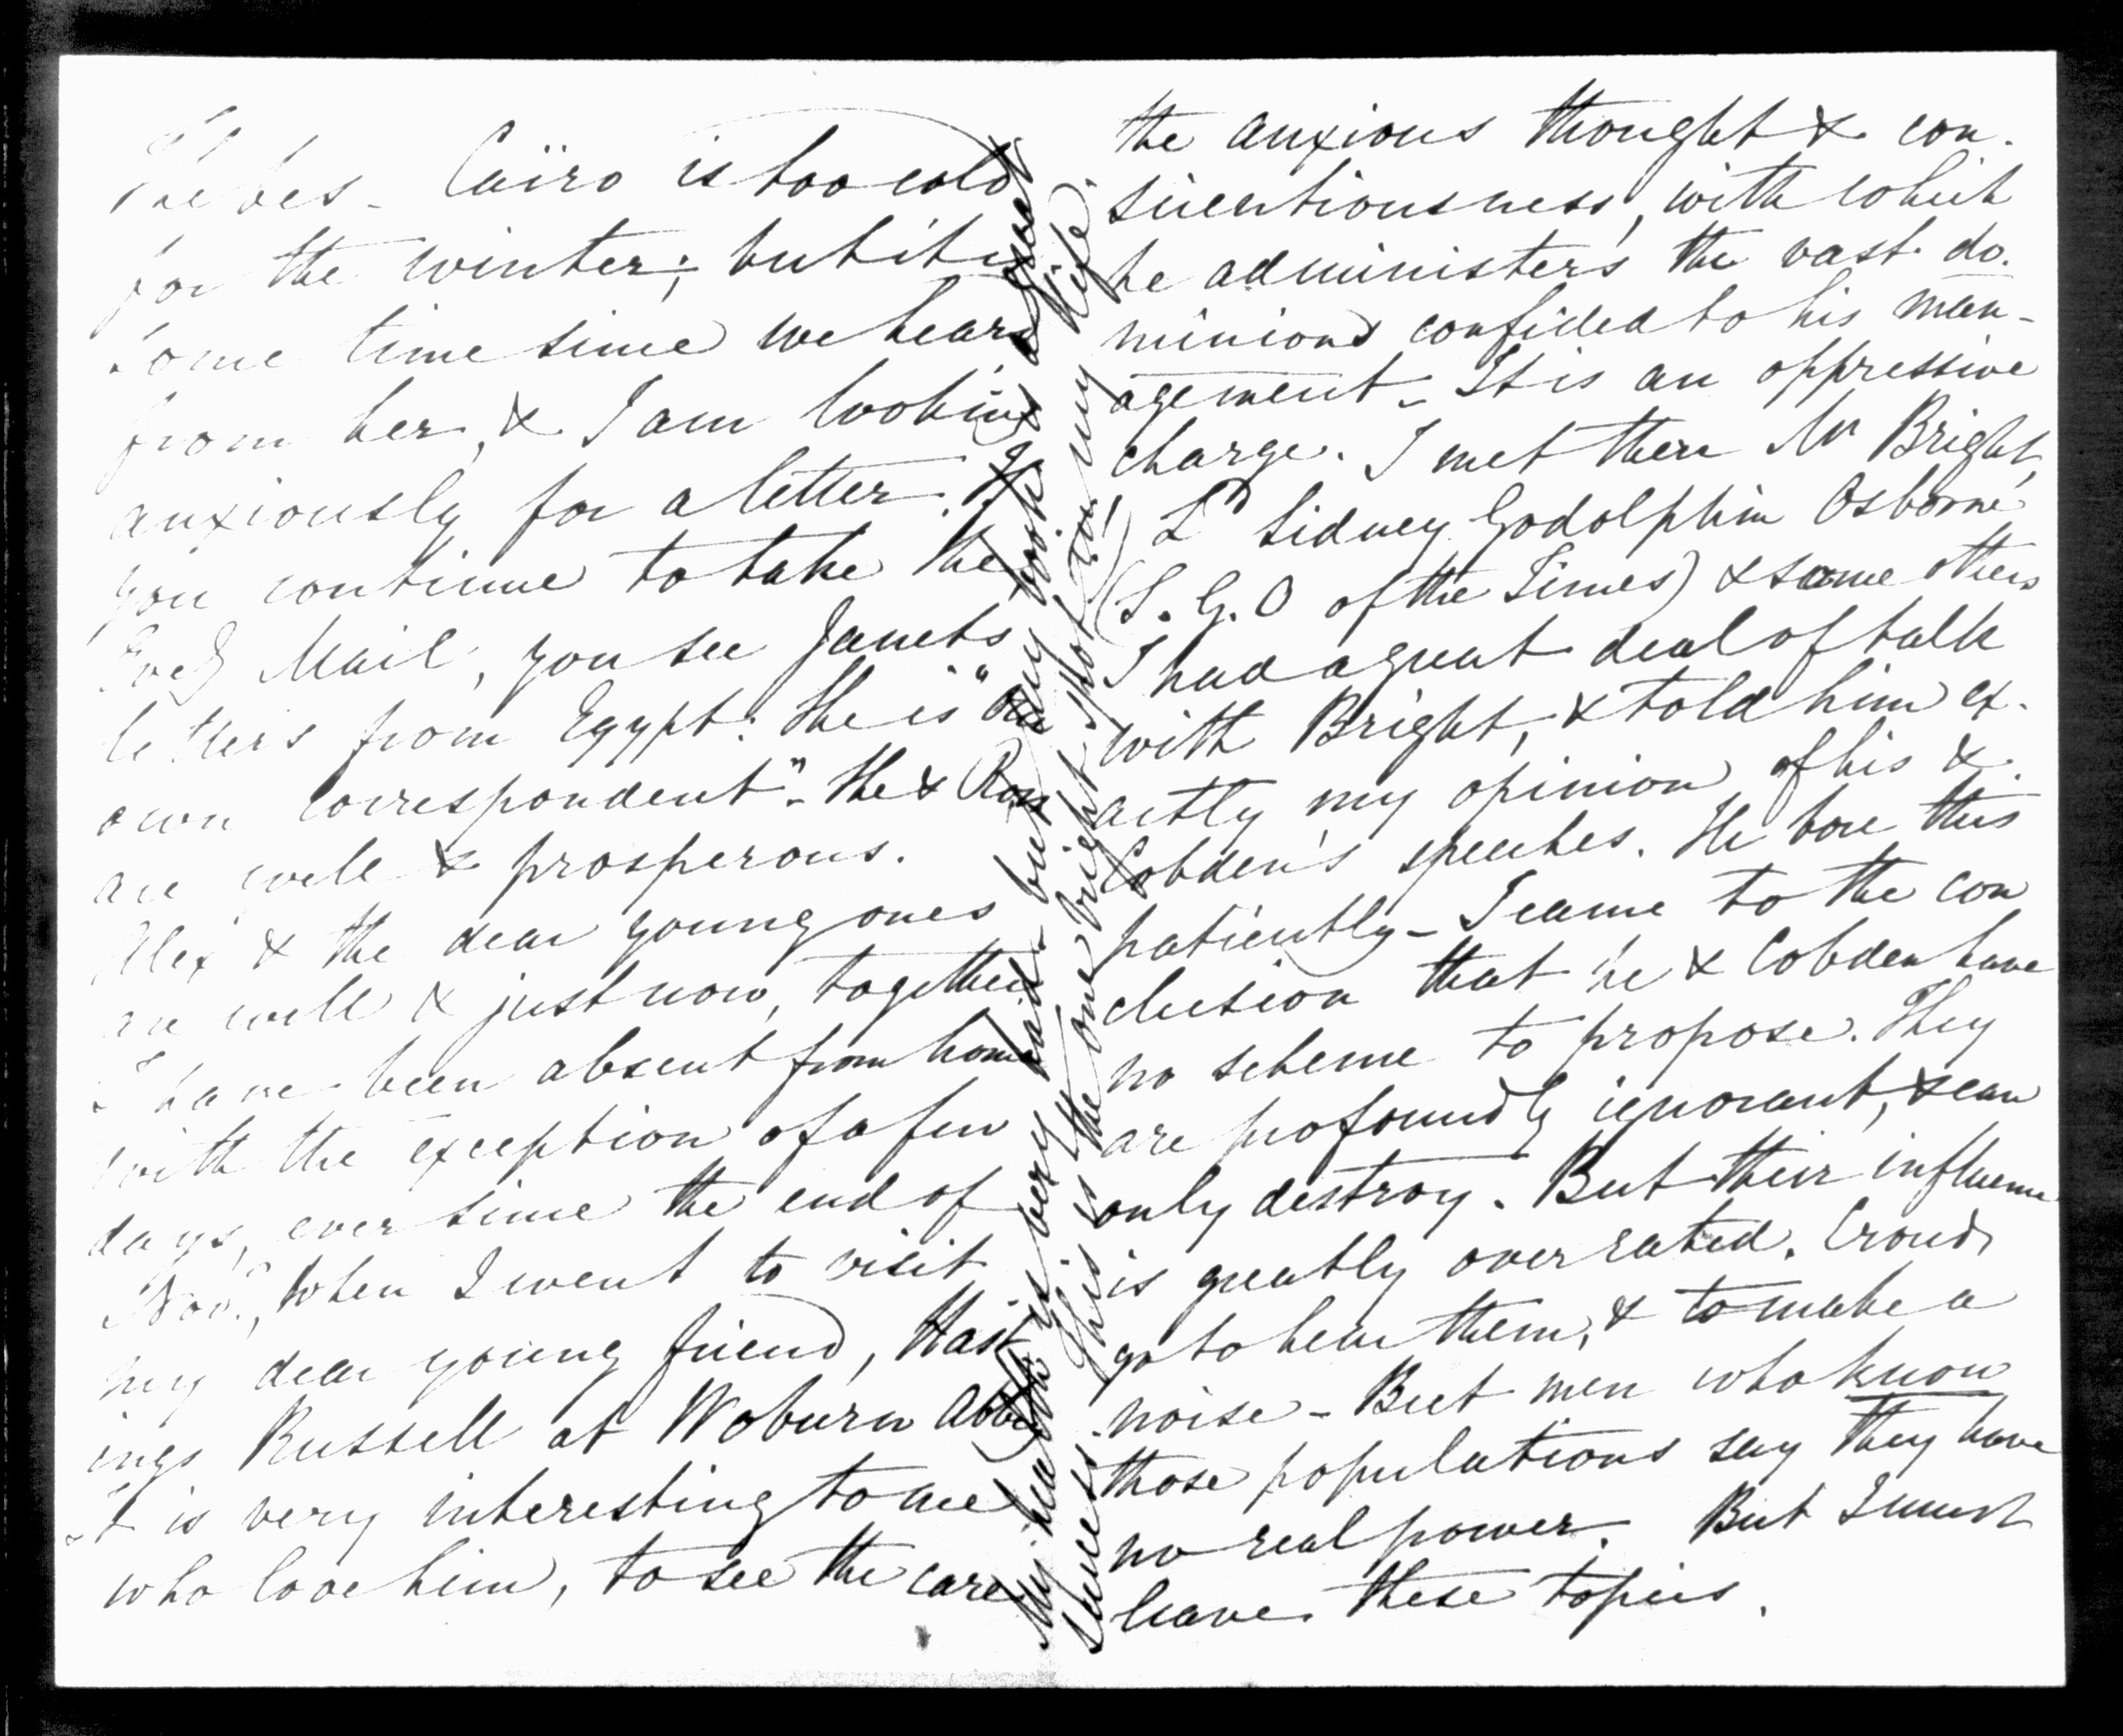 Thebes - Caïro is too cold
for the winter; but it is
some time since we heard
from her, & I am looking
anxiously for a letter. If
you continue to take the
Eveg Mail, you see Janet's
letters from Egypt: She is "our
own correspondent" - She & Ross
are well & prosperous.
Alex & the dear young ones
are well & just now, together
I have been absent from home
with the exception of a few
days, ever since the end of
Nov., when I went to visit
my dear young friend, Hast-
ings Russell at Woburn Abbey
It is very interesting to me
who love him, to see the care
the anxious thought & con-
scientiousness, with which
he administers the vast do-
minions confided to his man-
agement - It is an oppressive
charge. I met there Mr Bright,
Ld Sidney Godolphin Osborne
(S. G. O of the Times) & some others
I had a great deal of talk
with Bright, & told him ex-
actly my opinion of his &
Cobden's speeches. He bore this
patiently - I came to the con
clusion that he & Cobden have
no scheme to propose. They
are profoundly ignorant, & can
only destroy. But their influence
is greatly over rated. Crowds
go to hear them, & to make a
noise - But men who know
those populations say they have
no real power. But I must
leave these topics.
My health is very bad - but my work is a great
success. This is the one bright spot in my life.